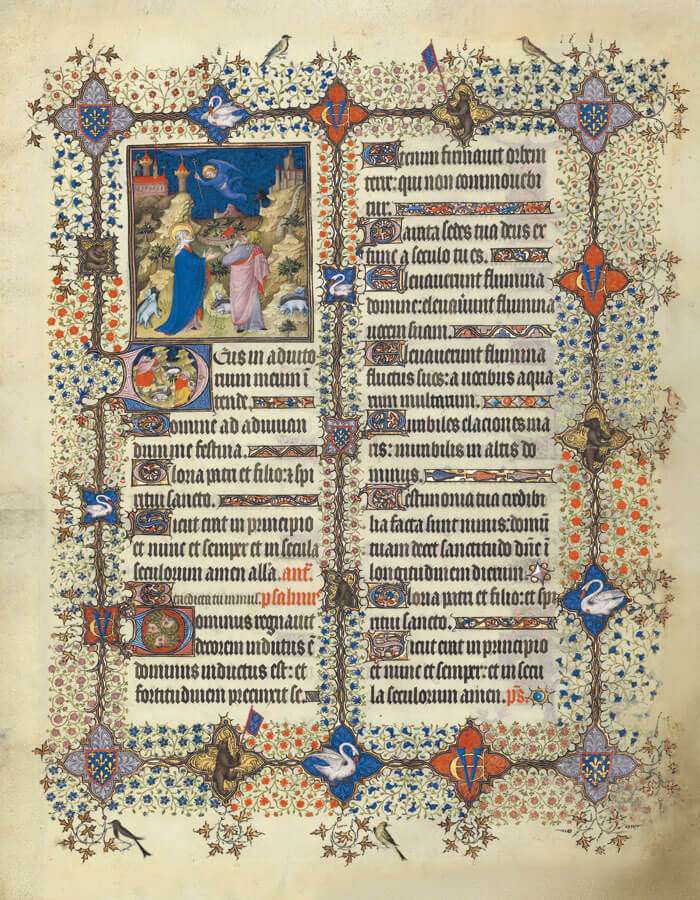 Deus in adiuto
rium meum ī
tende.
Domine ad adiuuan
dum me festina.
Gloria patri et filio: et spi
ritui sancto.
Sicut erat in principio
et nunc et semper et in secula
seculorum amen alla. ant.
Benedicta tu psalmus
Dominus regnauit
decorem indutus ē
dominus indutus est: et
fortitudinem precinxit se.
Etenim firmauit orbem
terre: qui non commouebi
tur.
Parata sedes tua deus ex
tunc a seculo tu es.
Eleuauerunt flumina
domine: eleuauerunt flumina
uocem suam.
Eleuauerunt flumina
fluctus suos: a uocibus aqua
rum multarum.
Mirabiles elaciones ma
ris: mirabilis in altis do
minus.
Testimonia tua credibi
lia facta sunt nimis: domū
tuam decet sanctitudo dñe ī
longitudinem dierum.
Gloria patri et filio: et spi
ritui sancto.
Sicut erat in principio
et nunc et semper: et in secu
la seculorum amen. ps.